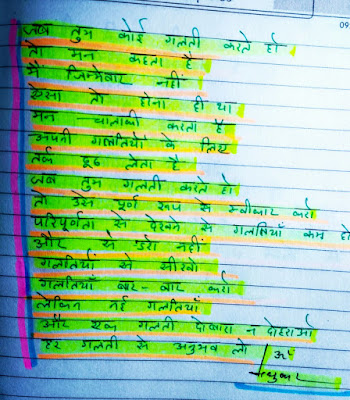 09
जब तुम कोई गलती करते हो
तो मन कहता है
मैं जिम्मेवार नहीं
ऐसा तो होना ही था
मन चालाकी करता है
अपनी गलतियों के लिए
तर्क ढूढ लेता है
जब तुम गलती करते हो
तो उसे पूर्ण रूप से स्वीकार करो
परिपूर्णता से देखने से गलतियाँ कम हो
और से डरो नहीं
गलतियों से सीखो
गलतियां बार-बार करो
लेकिन नई गलतियां
और एक गलती दोबारा न दोहराओ
हर गलती से अनुभव लो